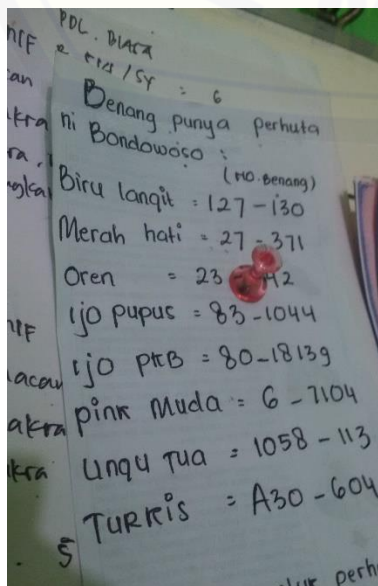 PDL. BIASA
= 6
Benang punya perhuta
ni Bondowoso :
(NO. Benang)
Biru langit = 127-130
Merah hati = 27-371
Oren = 23
ijo pupus = 83-1044
ijo PKB = 80-18139
pink Muda = 6-7104
ungu Tua = 1058-113
TURKIS = A30-604
5